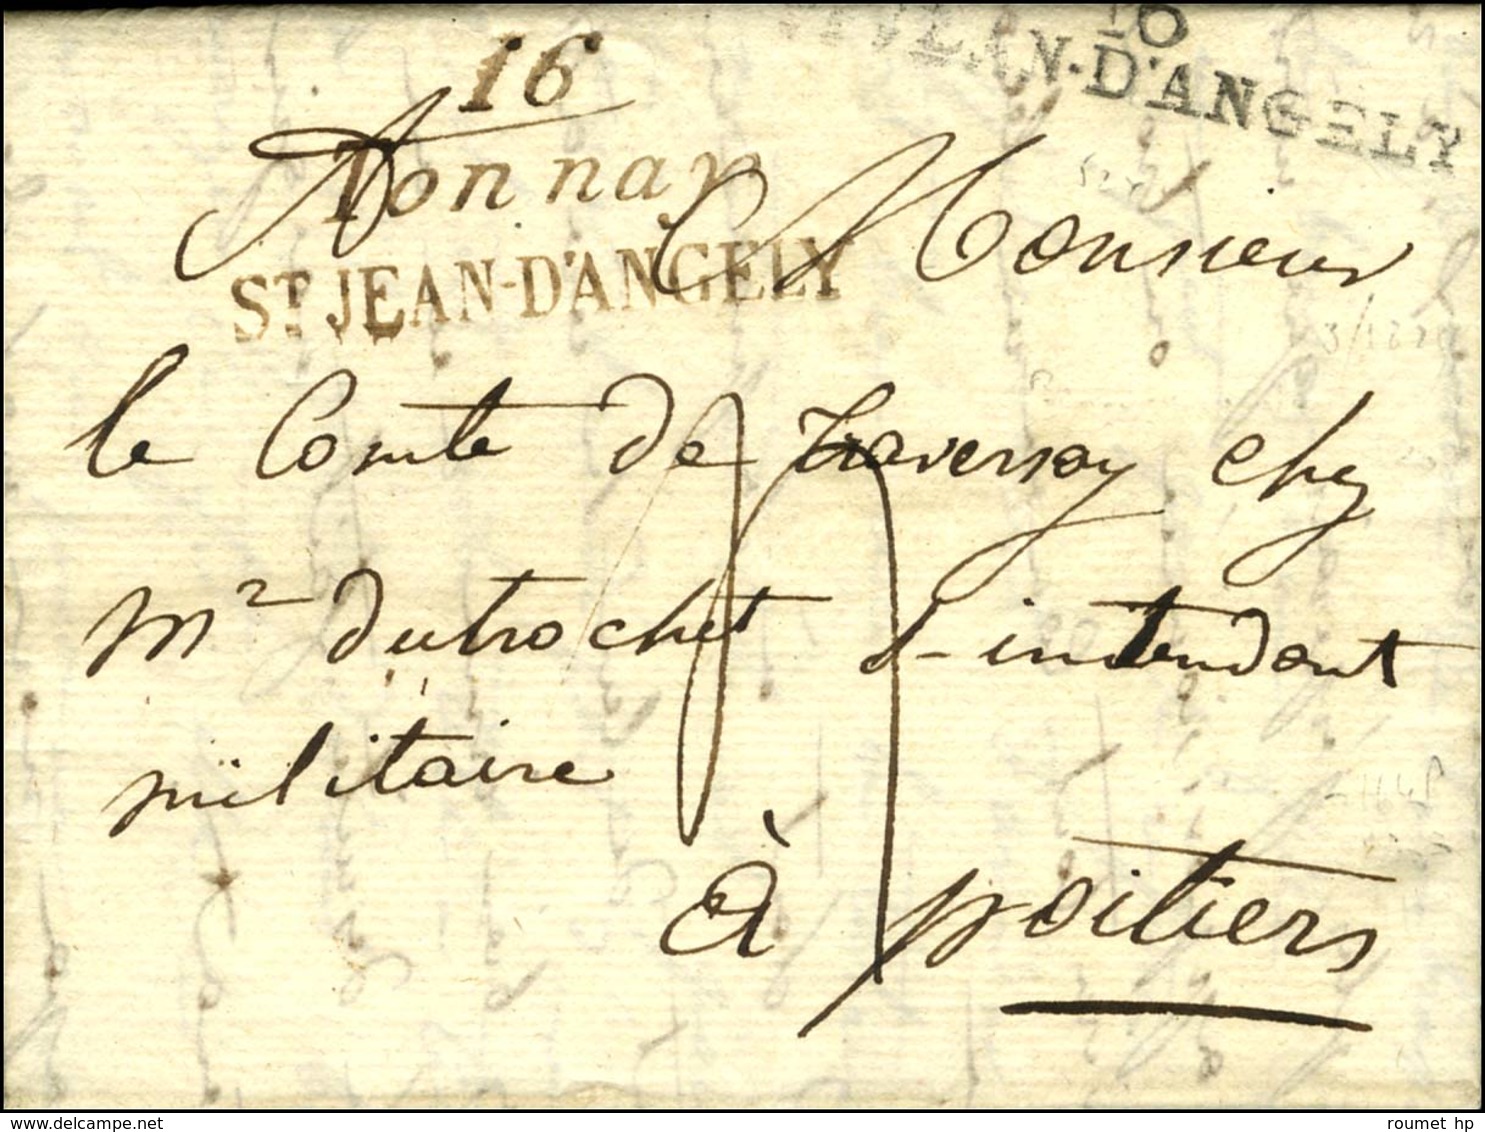 16
16
Tonnay
ST JEAN-D'ANGELY
N-D'ANGELY
A Monsieur
le Comte de Traversay chez
Mr dutrochet S-intendant
militaire
à poitiers
roumet hp